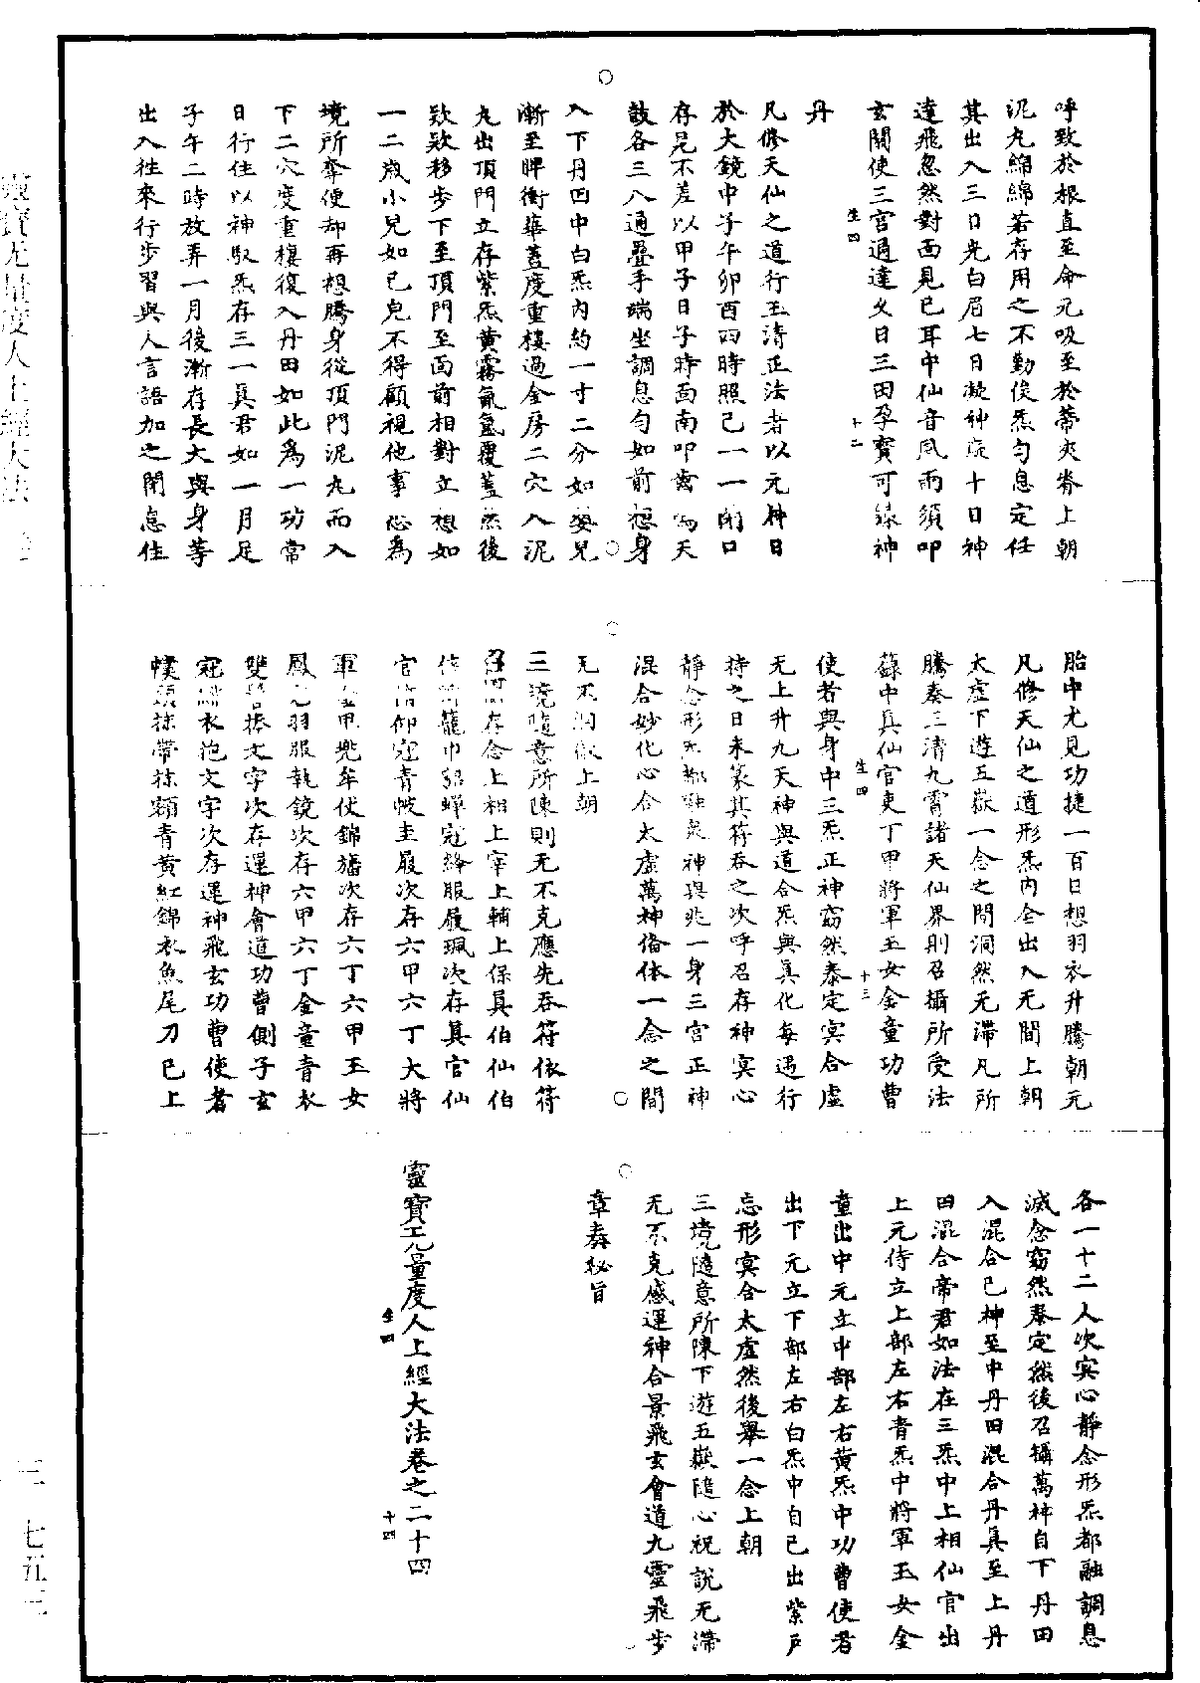 呼致於根直至命元吸至於蒂夾脊上朝
泥丸綿綿若存用之不勤俟炁勻息定任
其出入三日光白眉七日凝神庭十日神
達飛忽然對面見已耳中仙音風雨須叩
玄關使三宮通達义日三田孕寶可錄神
生四
十二
丹
凡修天仙之道行玉清正法者以元神日
於大鏡中子午卯酉四時照己一一閉口
存見不差以甲子日子時面南叩齒鳴天
鼓各三八通疊手端坐調息勻如前想身
入下丹田中白炁內約一寸二分如嬰兒
漸至脾衝華蓋度重樓過金房二穴入泥
丸出頂門立存紫炁黃霧氤氳覆蓋然後
欵欵移步下至頂門至面前相對立想如
一二歲小兒如已皃不得顧視他事恐為
境所牽便却再想騰身從頂門泥丸而入
下二穴度重樓復入丹田如此為一功常
日行住以神馭炁存三一真君如一月足
子午二時放弄一月後漸存長大與身等
出入往來行步習與人言語加之閉息住
胎中尤見功捷一百日想羽衣升騰朝元
凡修天仙之道形炁內全出入无間上朝
太虛下遊五嶽一念之間洞然无滯凡所
騰奏三清九霄諸天仙界則召攝所受法
籙中真仙官吏丁甲將軍玉女金童功曹
生四
十三
使者與身中三炁正神窈然泰定冥合虛
无上升九天神與道合炁與真化每遇行
持之日未篆其符吞之次呼召存神冥心
靜念形炁都融炁神與兆一身三宮正神
混合妙化心合太虛萬神備依一念之間
无不洞徹上朝
三境隨意所陳則无不克應先吞符依符
召四存念上相上宰上輔上保真伯仙伯
侍衛籠巾貂蟬冠絳服履珮次存真官仙
官簡仰冠青帔圭履次存六甲六丁大將
軍金甲兜牟伏錦旛次存六丁六甲玉女
鳳冠羽服執鏡次存六甲六丁金童青衣
雙髻捧文字次存運神會道功曹側子玄
冠緋衣抱文字次存運神飛玄功曹使者
幞頭抹帶抹額青黃紅錦衣魚尾刀已上
各一十二人次冥心靜念形炁都融調息
滅念窈然泰定然後召攝萬神自下丹田
入混合已神至中丹田混合丹真至上丹
田混合帝君如法在三炁中上相仙官出
上元侍立上部左右青炁中將軍玉女金
童出中元立中部左右黃炁中功曹使者
出下元立下部左右白炁中自已出紫戶
忘形冥合太虛然後舉一念上朝
三境隨意所陳下遊五嶽隨心祝說无滯
无不克感運神合景飛玄會道九靈飛步
章奏秘旨
靈寶无量度人上經大法卷之二十四
生四
十四
靈寶无量度人上經大法
三
七五三